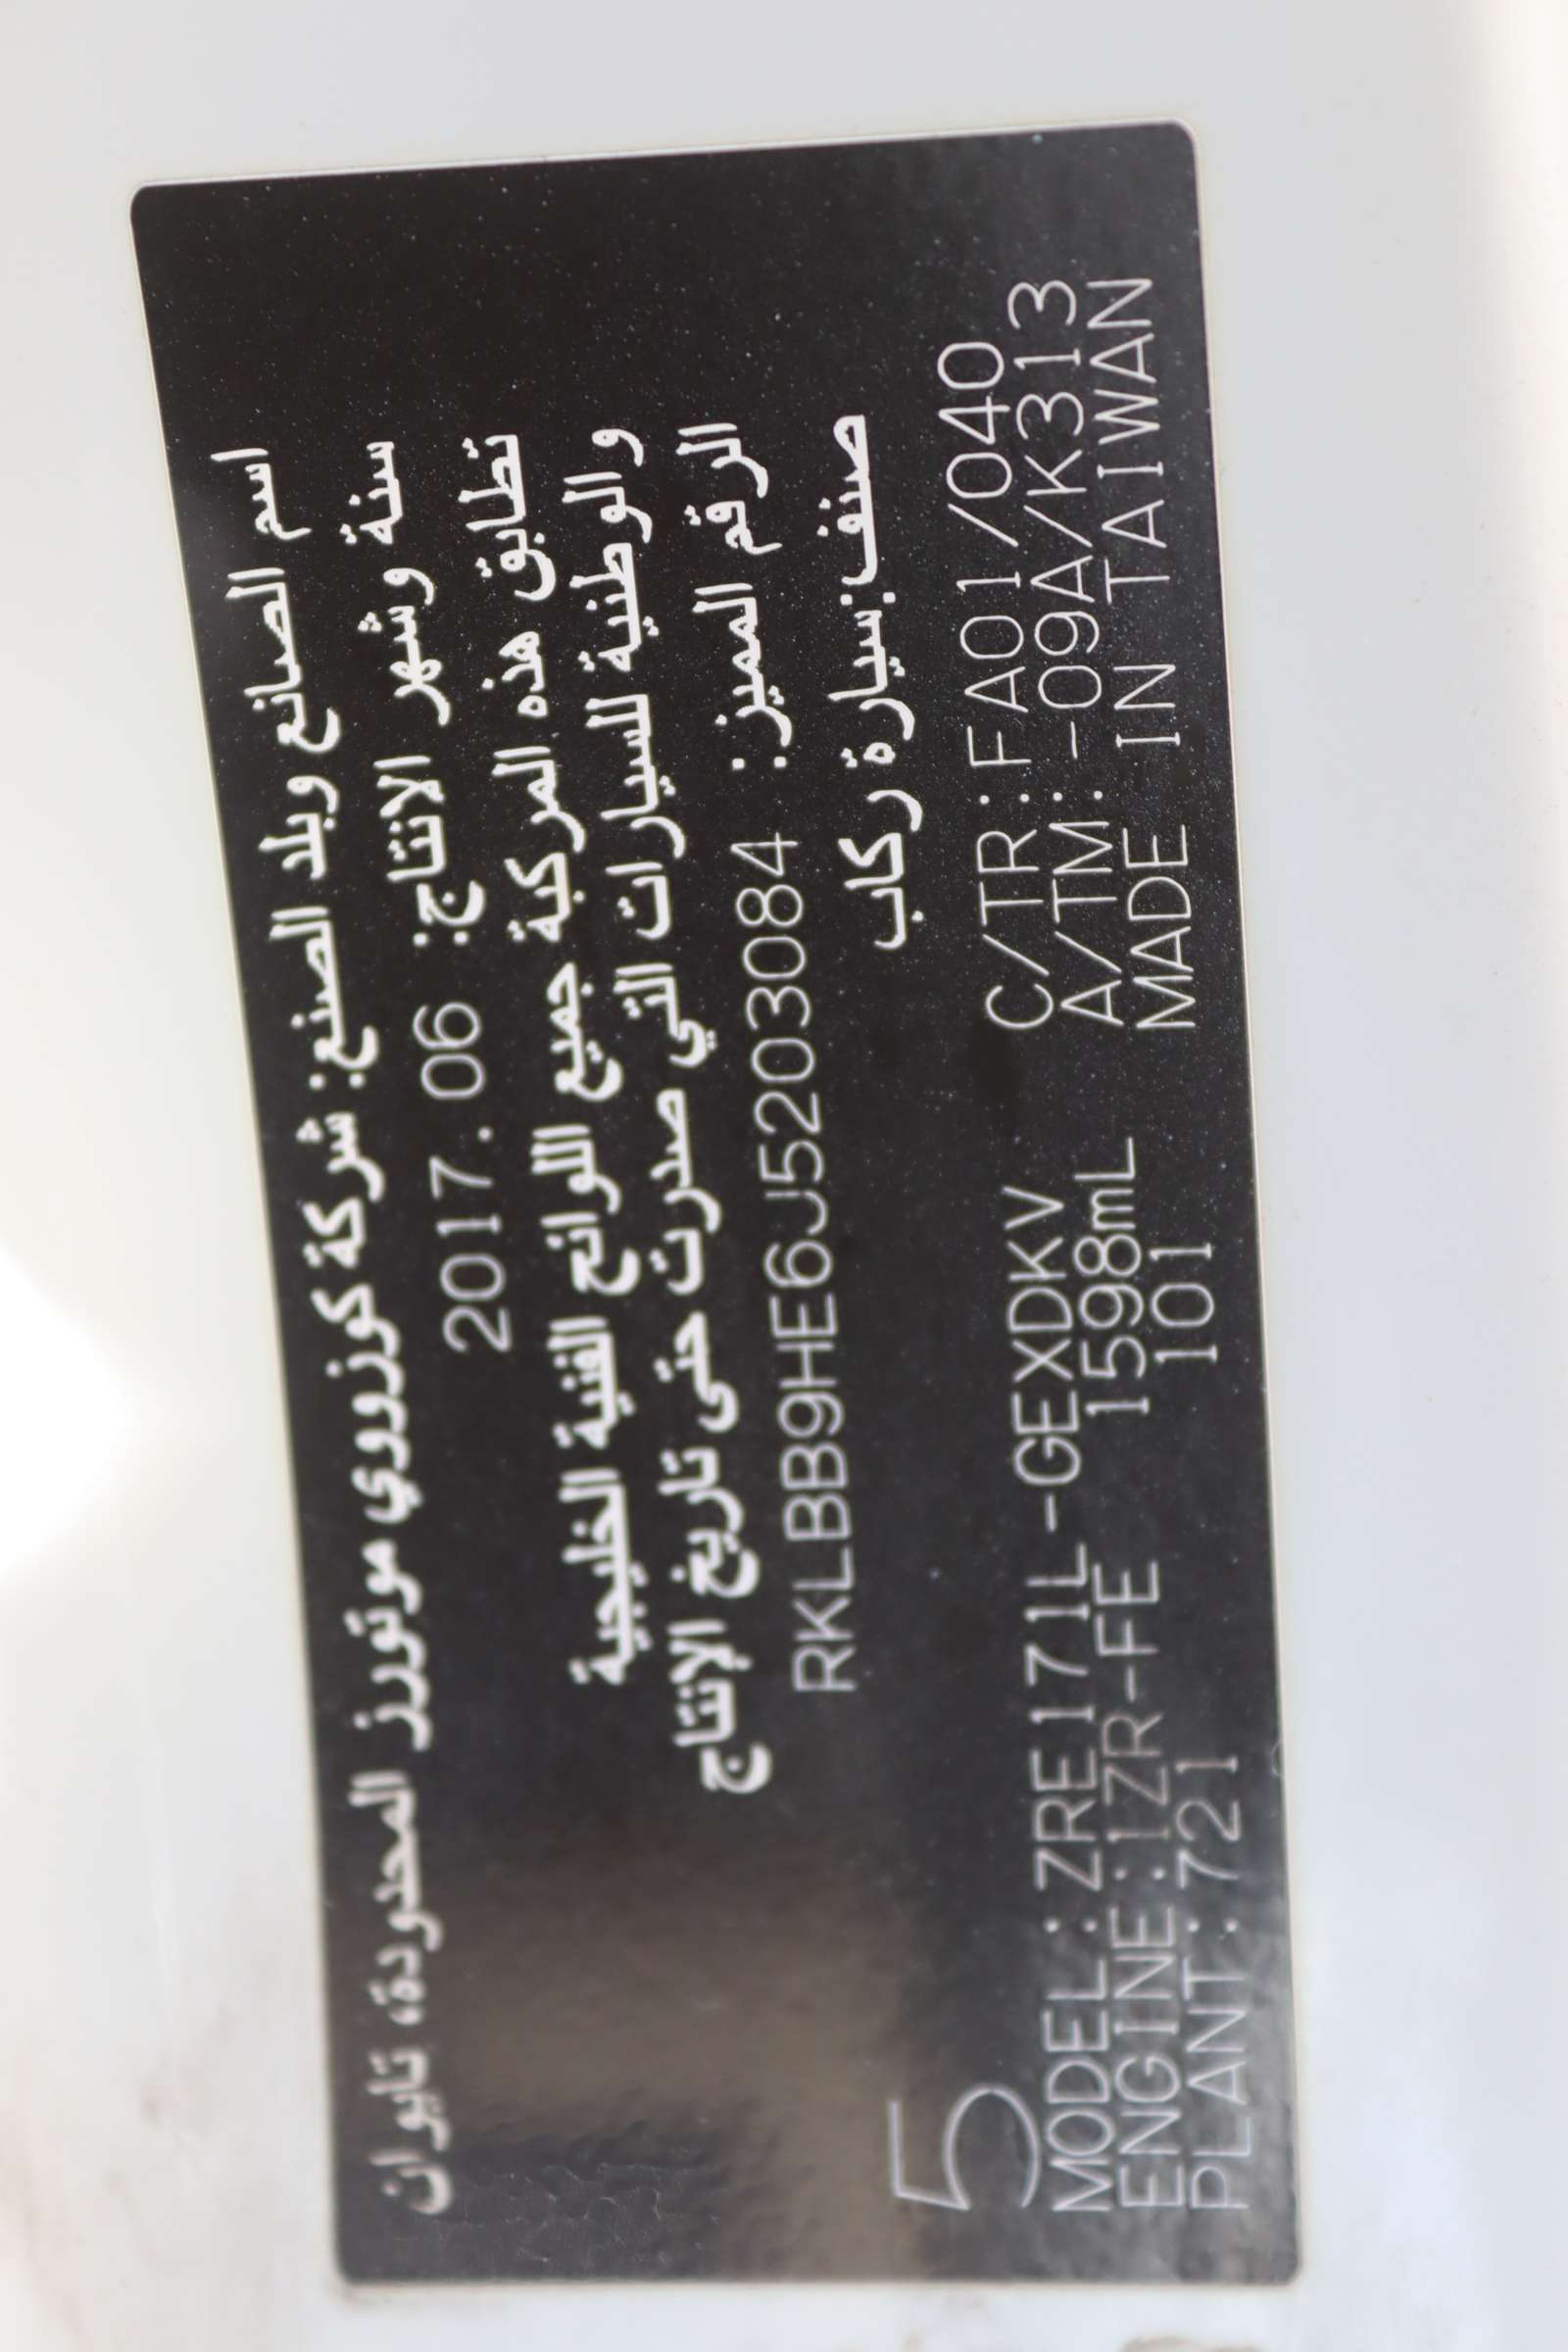 اسم الصانع وبلد الصنع: شركة كوزووي موتورز المحدودة، تايوان
سنة وشهر الانتاج: 2017. 06
تطابق هذه المركبة جميع اللوائح الفنية الخليجية
و الوطنية للسيارات التي صدرت حتى تاريخ الإنتاج
الرقم المميز: RKLBB9HE6J5203084
صنف:سيارة ركاب
5
MODEL:ZRE171L-GEXDKV C/TR:FA01/040
ENGINE:1ZR-FE 1598mL A/TM:-09A/K313
PLANT:721 101 MADE IN TAIWAN